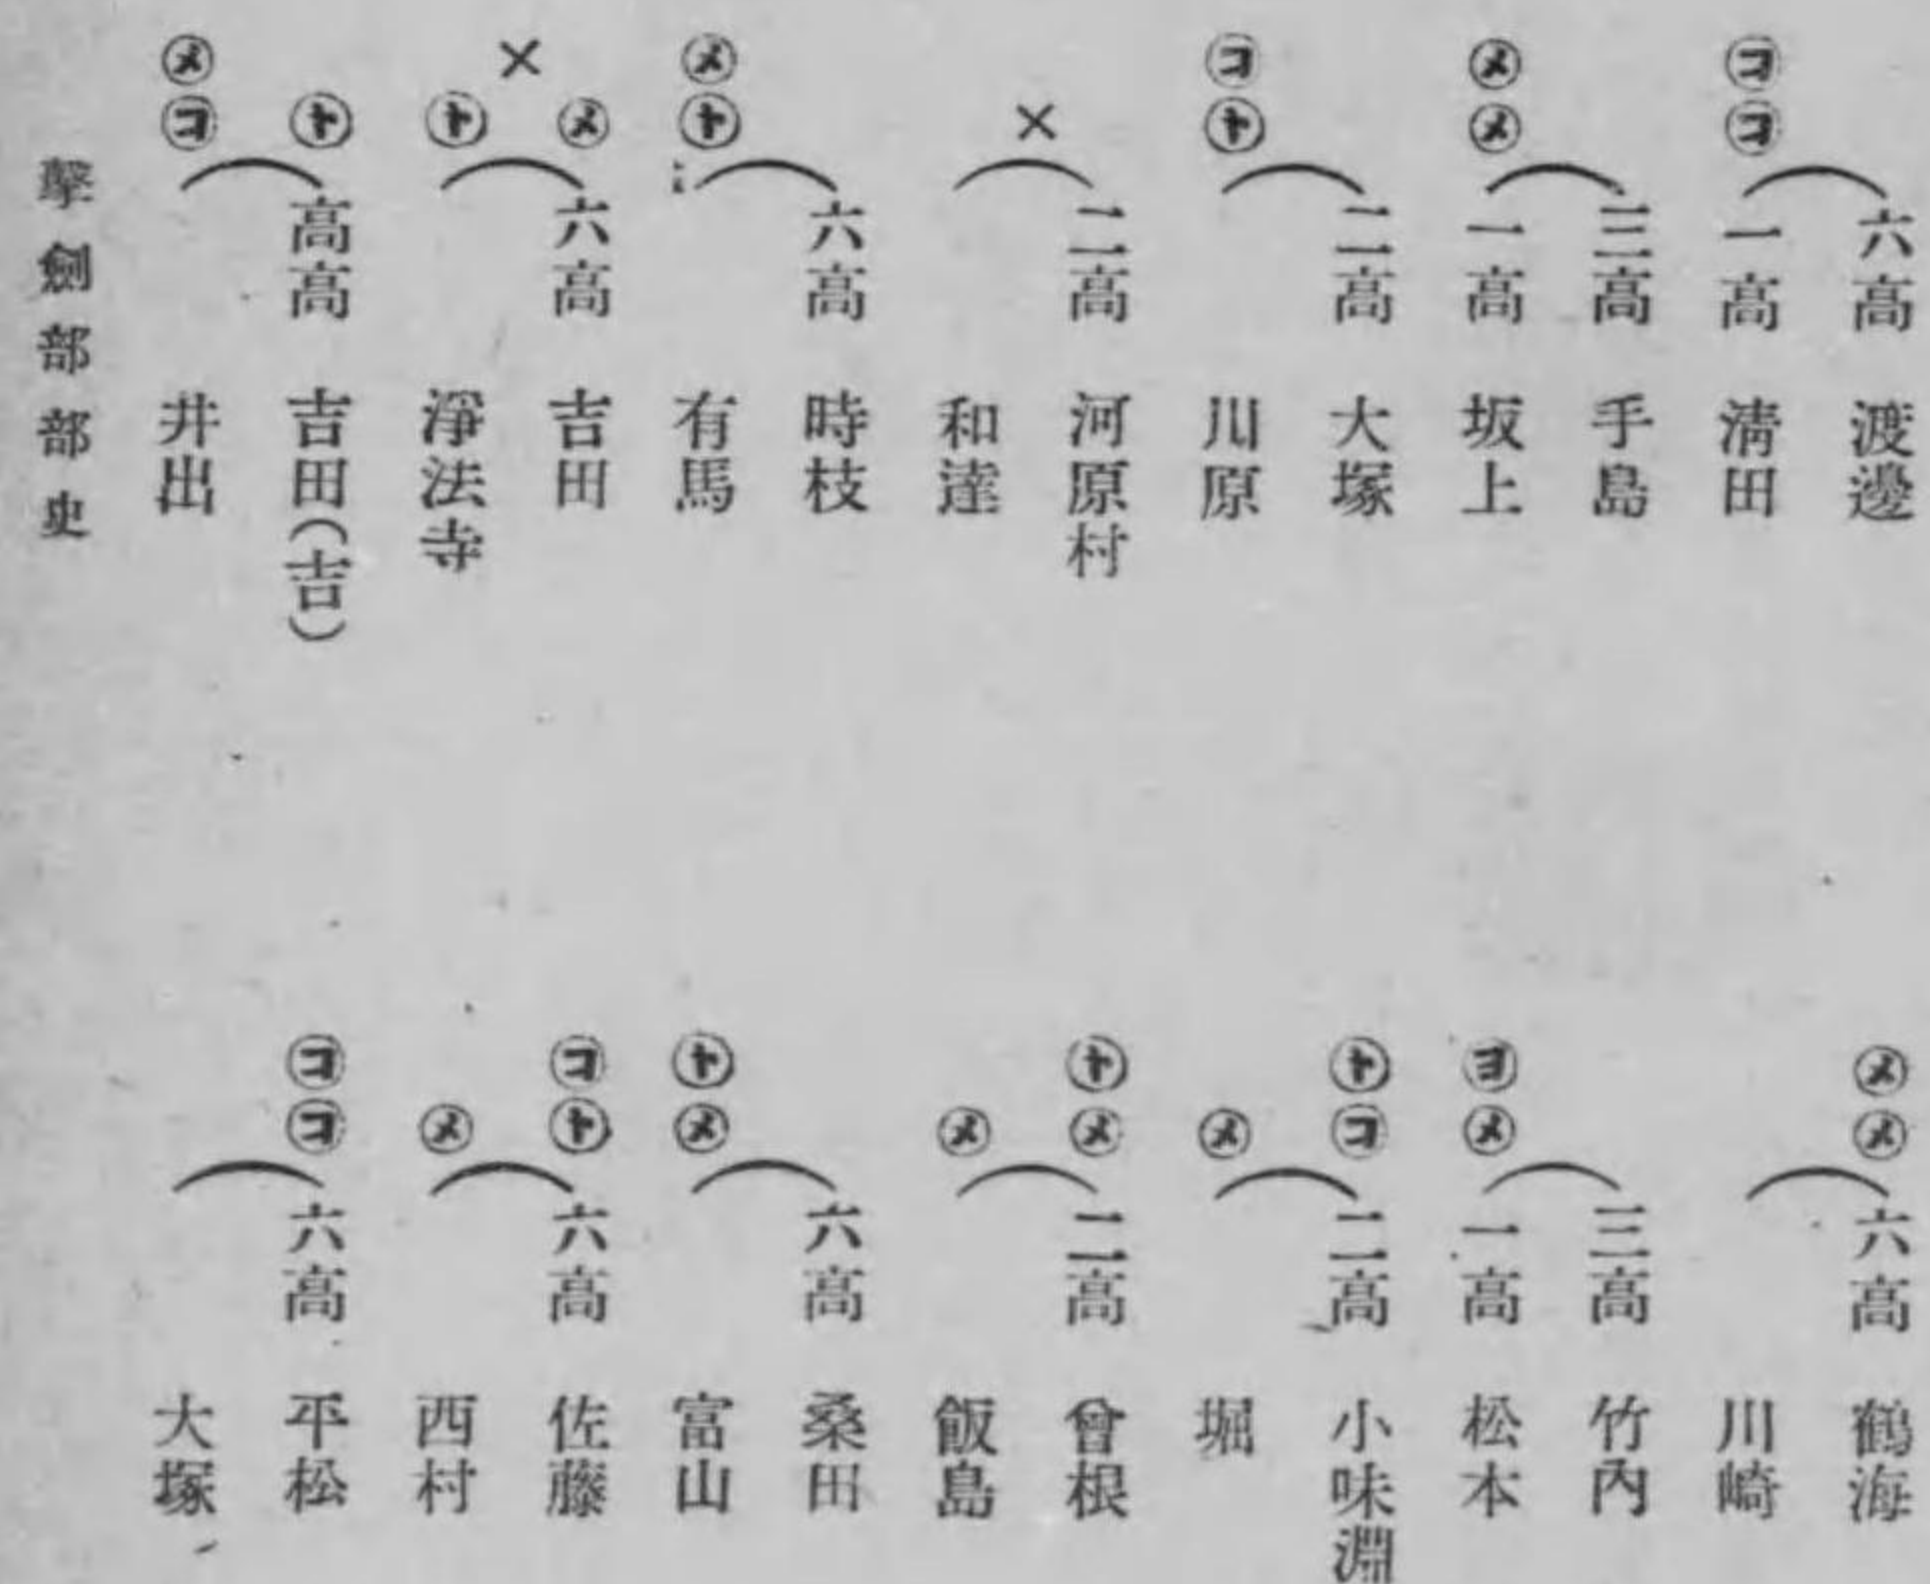 ㋙㋙
六高 渡邊
一高 淸田
㋱㋱
三高 手島
一高 坂上
㋙㋣
二高 大塚
川原
×
二高 河原村
和達
㋱㋣
六高 時枝
有馬
×
㋱ 六高 吉田
㋣ 淨法寺
㋣ 高高 吉田(吉)
㋱㋙ 井出
㋱㋱ 六高 鶴海
川崎
三高 竹內
㋵㋱ 一高 松本
㋣㋙ 二高 小味淵
㋱ 堀
㋣㋱ 二高 曾根
㋱ 飯島
六高 桑田
㋣㋱ 富山
㋙㋣ 六高 佐藤
㋱ 西村
㋙㋙ 六高 平松
大塚
擊劍部部史